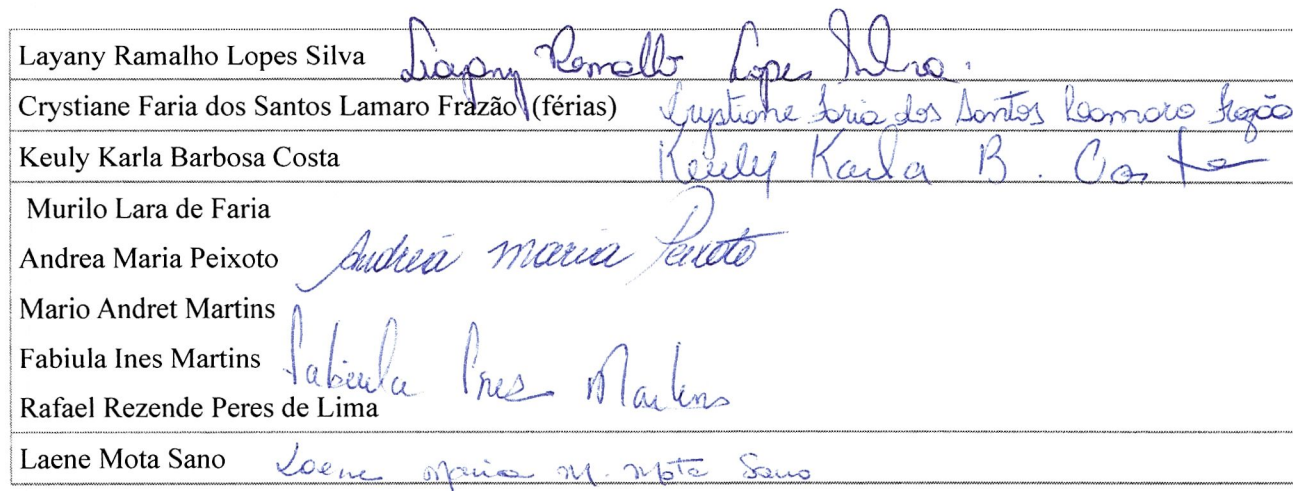 Layany Ramalho Lopes Silva Liayany Ramalho Lopes Silva.
Crystiane Faria dos Santos Lamaro Frazão (férias) Crystiane Faria dos Santos Leamaro Frazão
Keuly Karla Barbosa Costa Keuly Karla B. Costa
Murilo Lara de Faria
Andrea Maria Peixoto Andreá maria Peixoto
Mario Andret Martins
Fabiula Ines Martins Fabiula Ines Martins
Rafael Rezende Peres de Lima
Laene Mota Sano Laene Maria M. Mota Sano